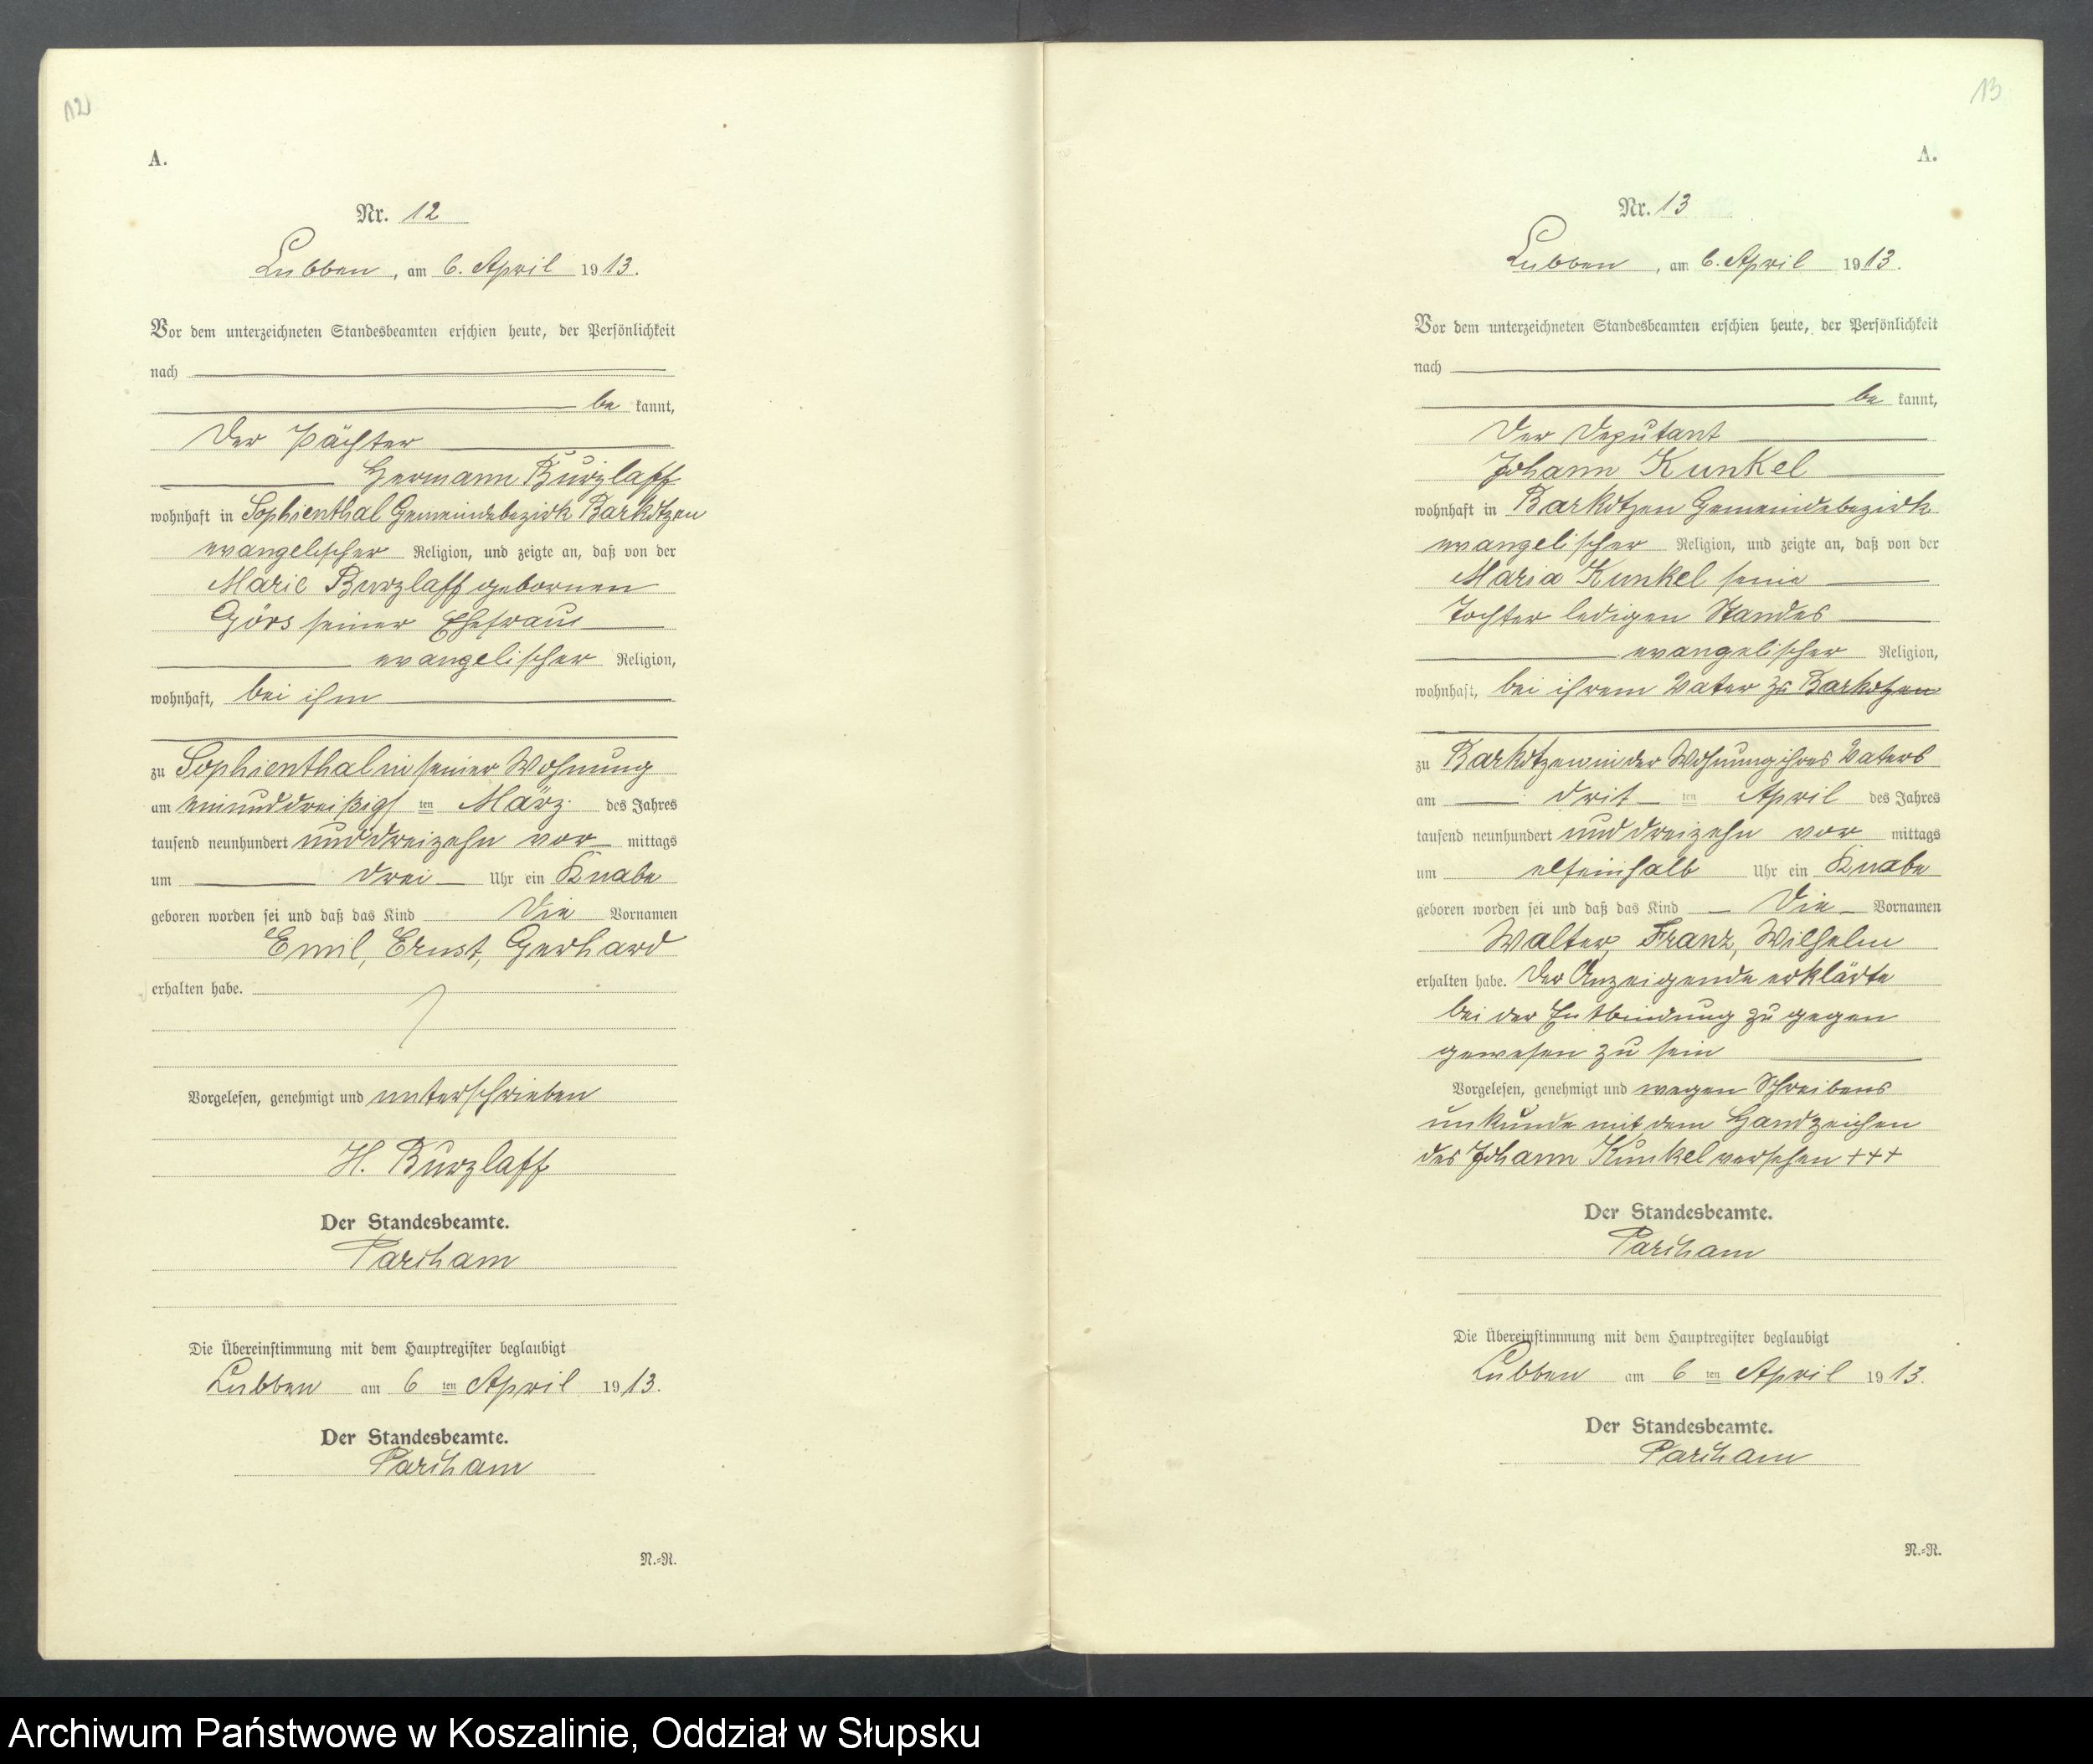 12
A.
Nr. 12
Lubben, am 6. April 1913.
Vor dem unterzeichneten Standesbeamten erschien heute, der Persönlichkeit
nach
be kannt,
der Pächter
Hermann Burzlaff
wohnhaft in Sophienthal Gemeindebezirk Barkotzen
evangelischer Religion, und zeigte an, daß von der
Marie Burzlaff gebornen
Görs seiner Ehefrau
evangelischer Religion,
wohnhaft, bei ihm
zu Sophienthal in seiner Wohnung
am einunddreißigs ten März des Jahres
tausend neunhundert und dreizehn vor mittags
um drei Uhr ein Knabe
geboren worden sei und daß das Kind die Vornamen
Emil, Ernst, Gerhard
erhalten habe.
Vorgelesen, genehmigt und unterschrieben
H. Burzlaff
Der Standesbeamte.
Die Übereinstimmung mit dem Hauptregister beglaubigt
Lubben am 6 ten April 1913.
Der Standesbeamte.
N.-R.
13
A.
Nr. 13
Lubben, am 6. April 1913.
Vor dem unterzeichneten Standesbeamten erschien heute, der Persönlichkeit
nach
be kannt,
der Deputant
Johann Kunkel
wohnhaft in Barkotzen Gemeindebezirk
evangelischer Religion, und zeigte an, daß von der
Maria Kunkel seine
Tochter ledigen Standes
evangelischer Religion,
wohnhaft, bei ihrem Vater zu Barkotzen
zu Barkotzen in der Wohnung ihres Vaters
am drit ten April des Jahres
tausend neunhundert und dreizehn vor mittags
um elfeinhalb Uhr ein Knabe
geboren worden sei und daß das Kind die Vornamen
Walter, Franz, Wilhelm
erhalten habe. Der Anzeigende erklärte
bei der Entbindung zu gegen
gewesen zu sein
Vorgelesen, genehmigt und wegen Schreibens
unkunde mit dem Handzeichen
des Johann Kunkel versehen +++
Der Standesbeamte.
Die Übereinstimmung mit dem Hauptregister beglaubigt
Lubben am 6 ten April 1913.
Der Standesbeamte.
N.-R.
Archiwum Państwowe w Koszalinie, Oddział w Słupsku